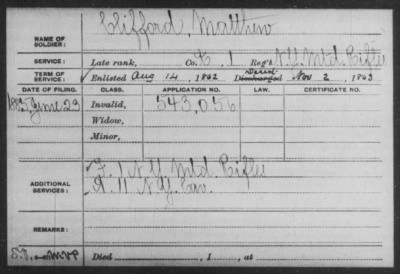 NAME OF SOLDIER: Clifford, Matthew
SERVICE: Late rank, Co. F, 1 Reg't N.Y. Mtd. Rifles
TERM OF SERVICE: Enlisted Aug 14, 1862 Desert. Discharged Nov 2, 1863
DATE OF FILING. CLASS. APPLICATION NO. LAW. CERTIFICATE NO.
1885 June 23 Invalid, 543,056
Widow,
Minor,
ADDITIONAL SERVICES: F. 1 N.Y. Mtd. Rifles
A. 11 N.Y. Cav.
REMARKS:
Died , 1 , at